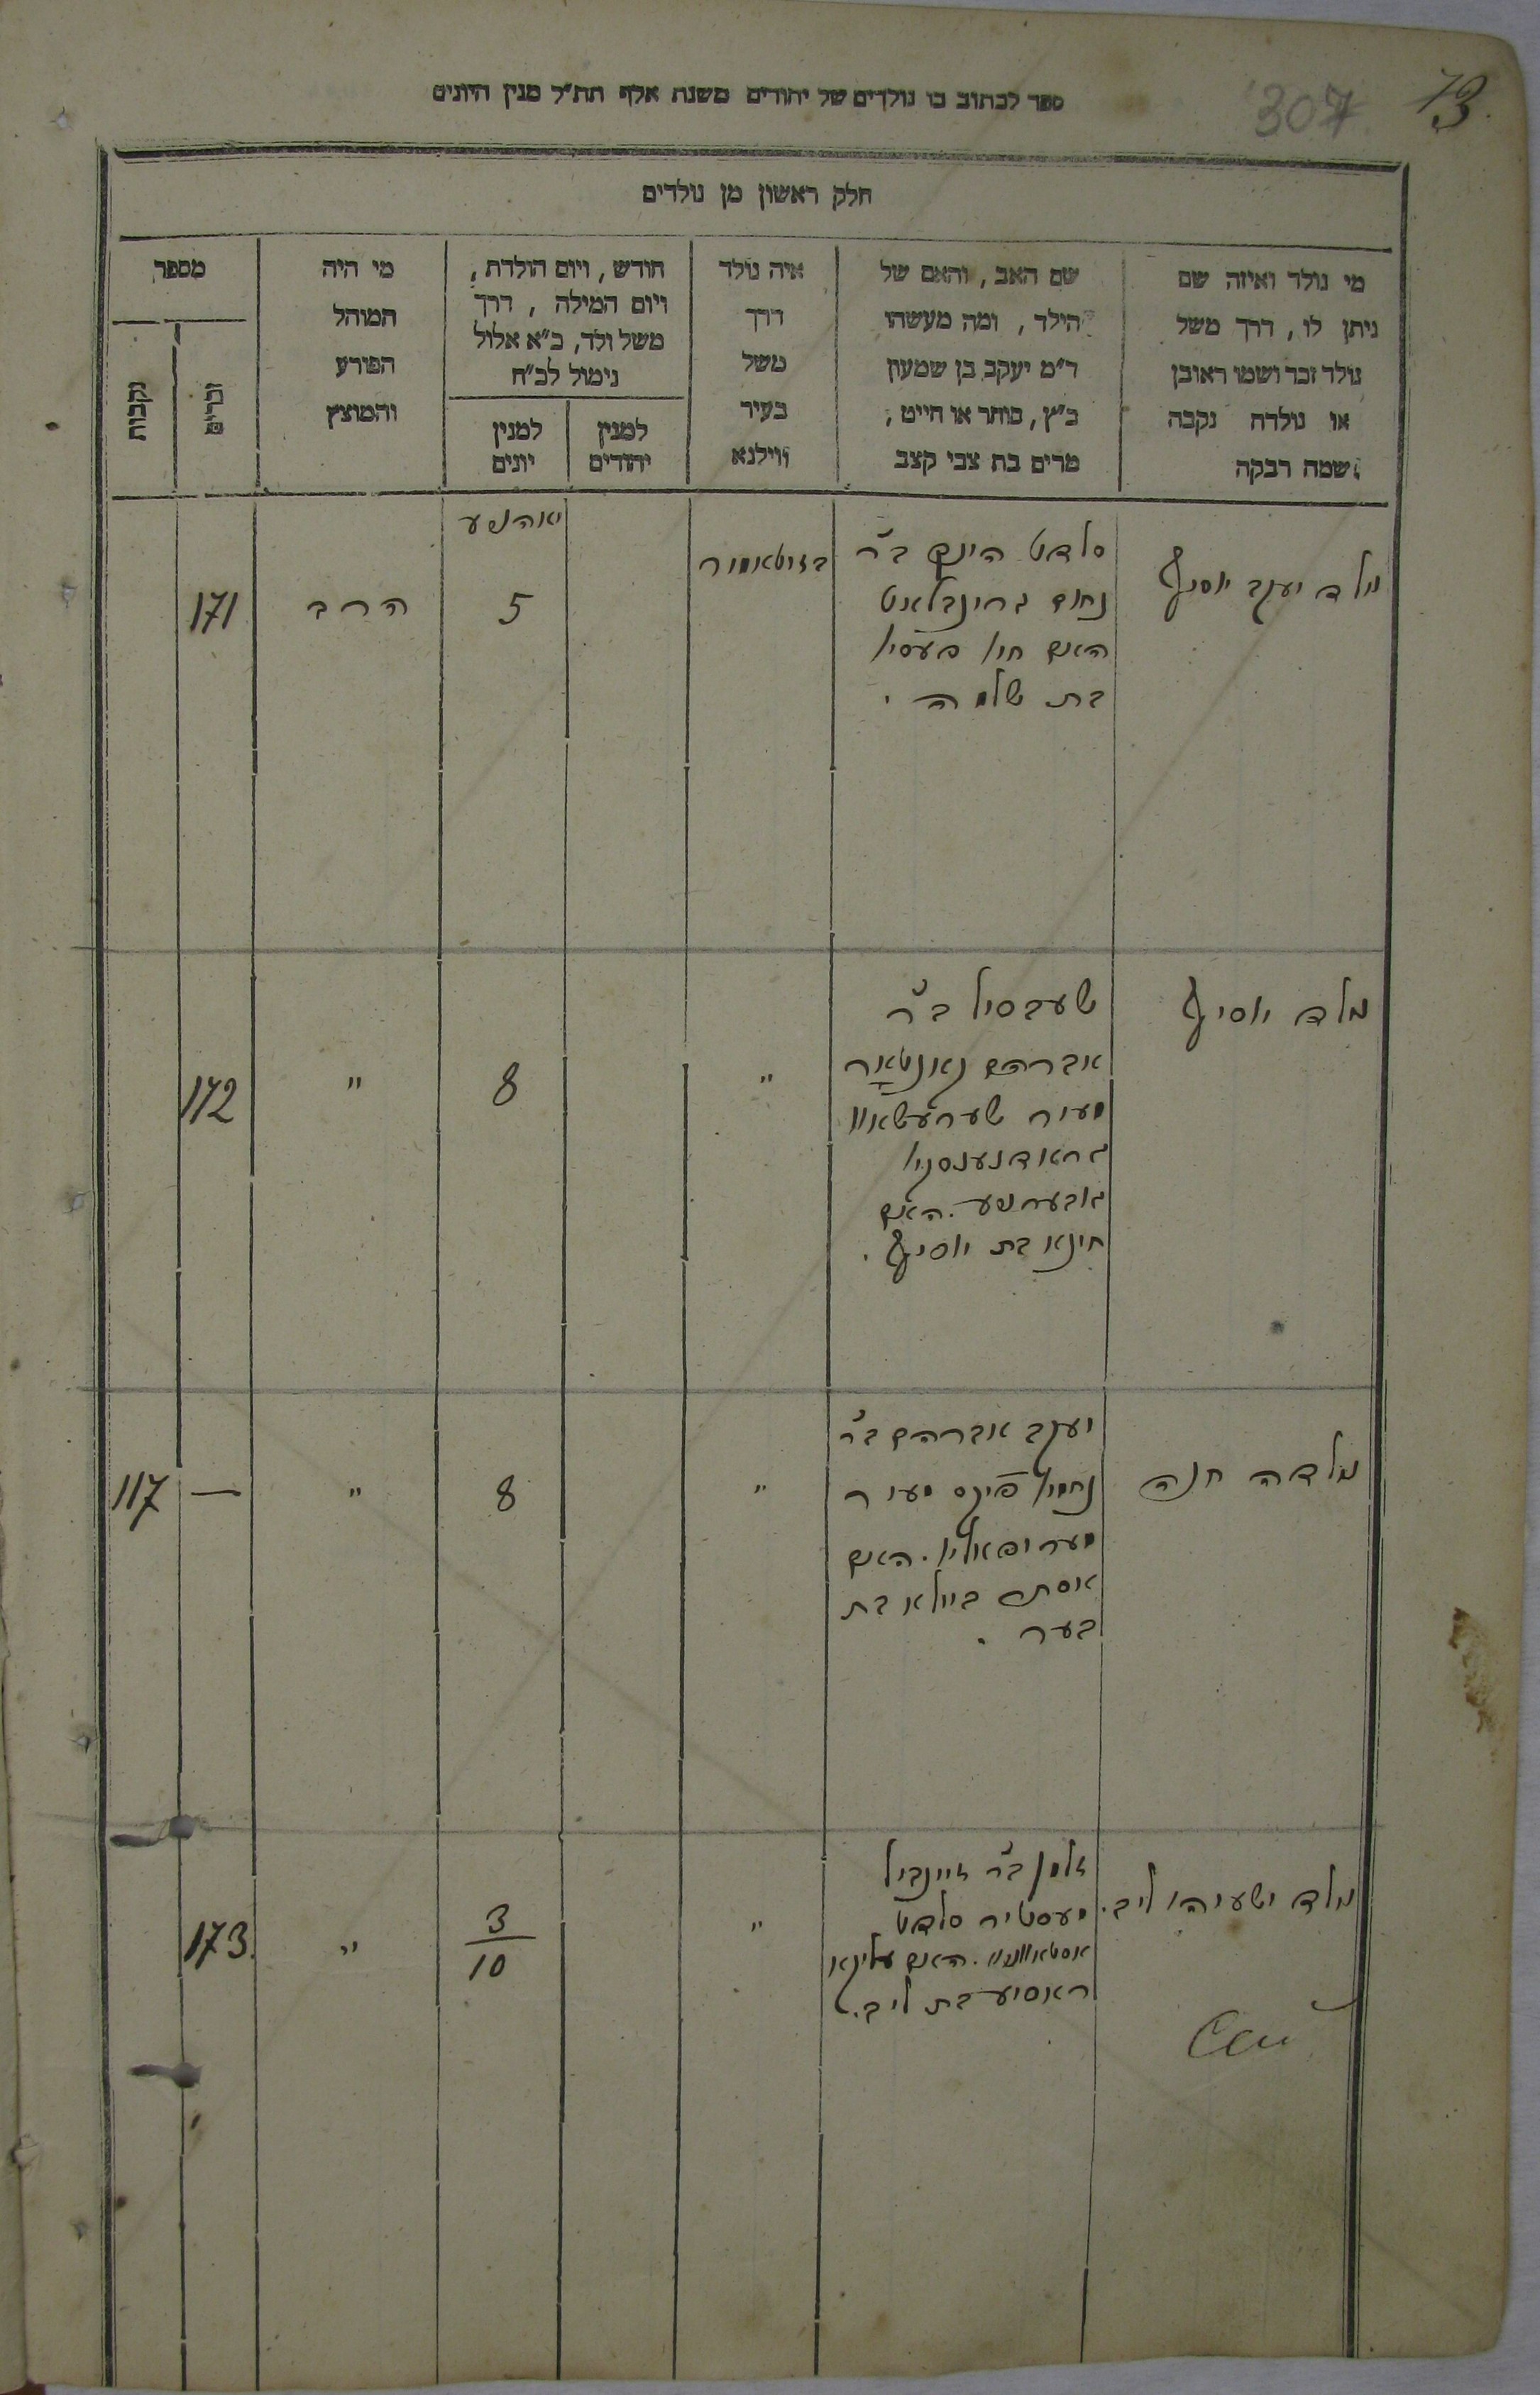 307
73.
ספר לכתוב בו נולדים של יהודים משנת אלף תת״ל מנין היונים
חלק ראשון מן נולדים
מי נולד ואיזה שם
ניתן לו, דרך משל
נולד זכר ושמו ראובן
או נולדה נקבה
שמה רבקה
שם האב, והאם של
הילד, ומה מעשהו
ד״מ יעקב בן שמעון
כ״ץ, סוחר או חייט,
מרים בת צבי קצב
איה נולד
דרך
משל
בעיר
ווילנא
חודש, ויום הולדת,
ויום המילה, דרך
משל ולד, כ״א אלול
נימול לכ״ח
למנין
יהודים
למנין
יונים
מי היה
המוהל
הפורע
והמוצץ
מספר
זכרים
נקבות
נולד יעקב יוסיף
סלדט הינך ב״ר
נחום גרינבלאט
האם חי׳ פעסי׳
בת שלמה.
בזיטאמיר
יאהנפע
5
הרב
171
נולד יוסיף
שעבסיל ב״ר
אברהם קאנטאר
מעיר שערעשאוו
גראדנענסקי׳
גובערנפע. האם
חינא בת יוסיף.
"
8
"
172
נולדה חנה
יעקב אברהם ב״ר
נחמי׳ פינס מעיר
מעריפאלי׳. האם
אסתר ביילא בת
בער.
"
8
"
—
117
נולד ישעיהו ליב.
זלמן ב״ר זיינביל
סלדט
האם
בת ליב.
"
3
10
"
173.